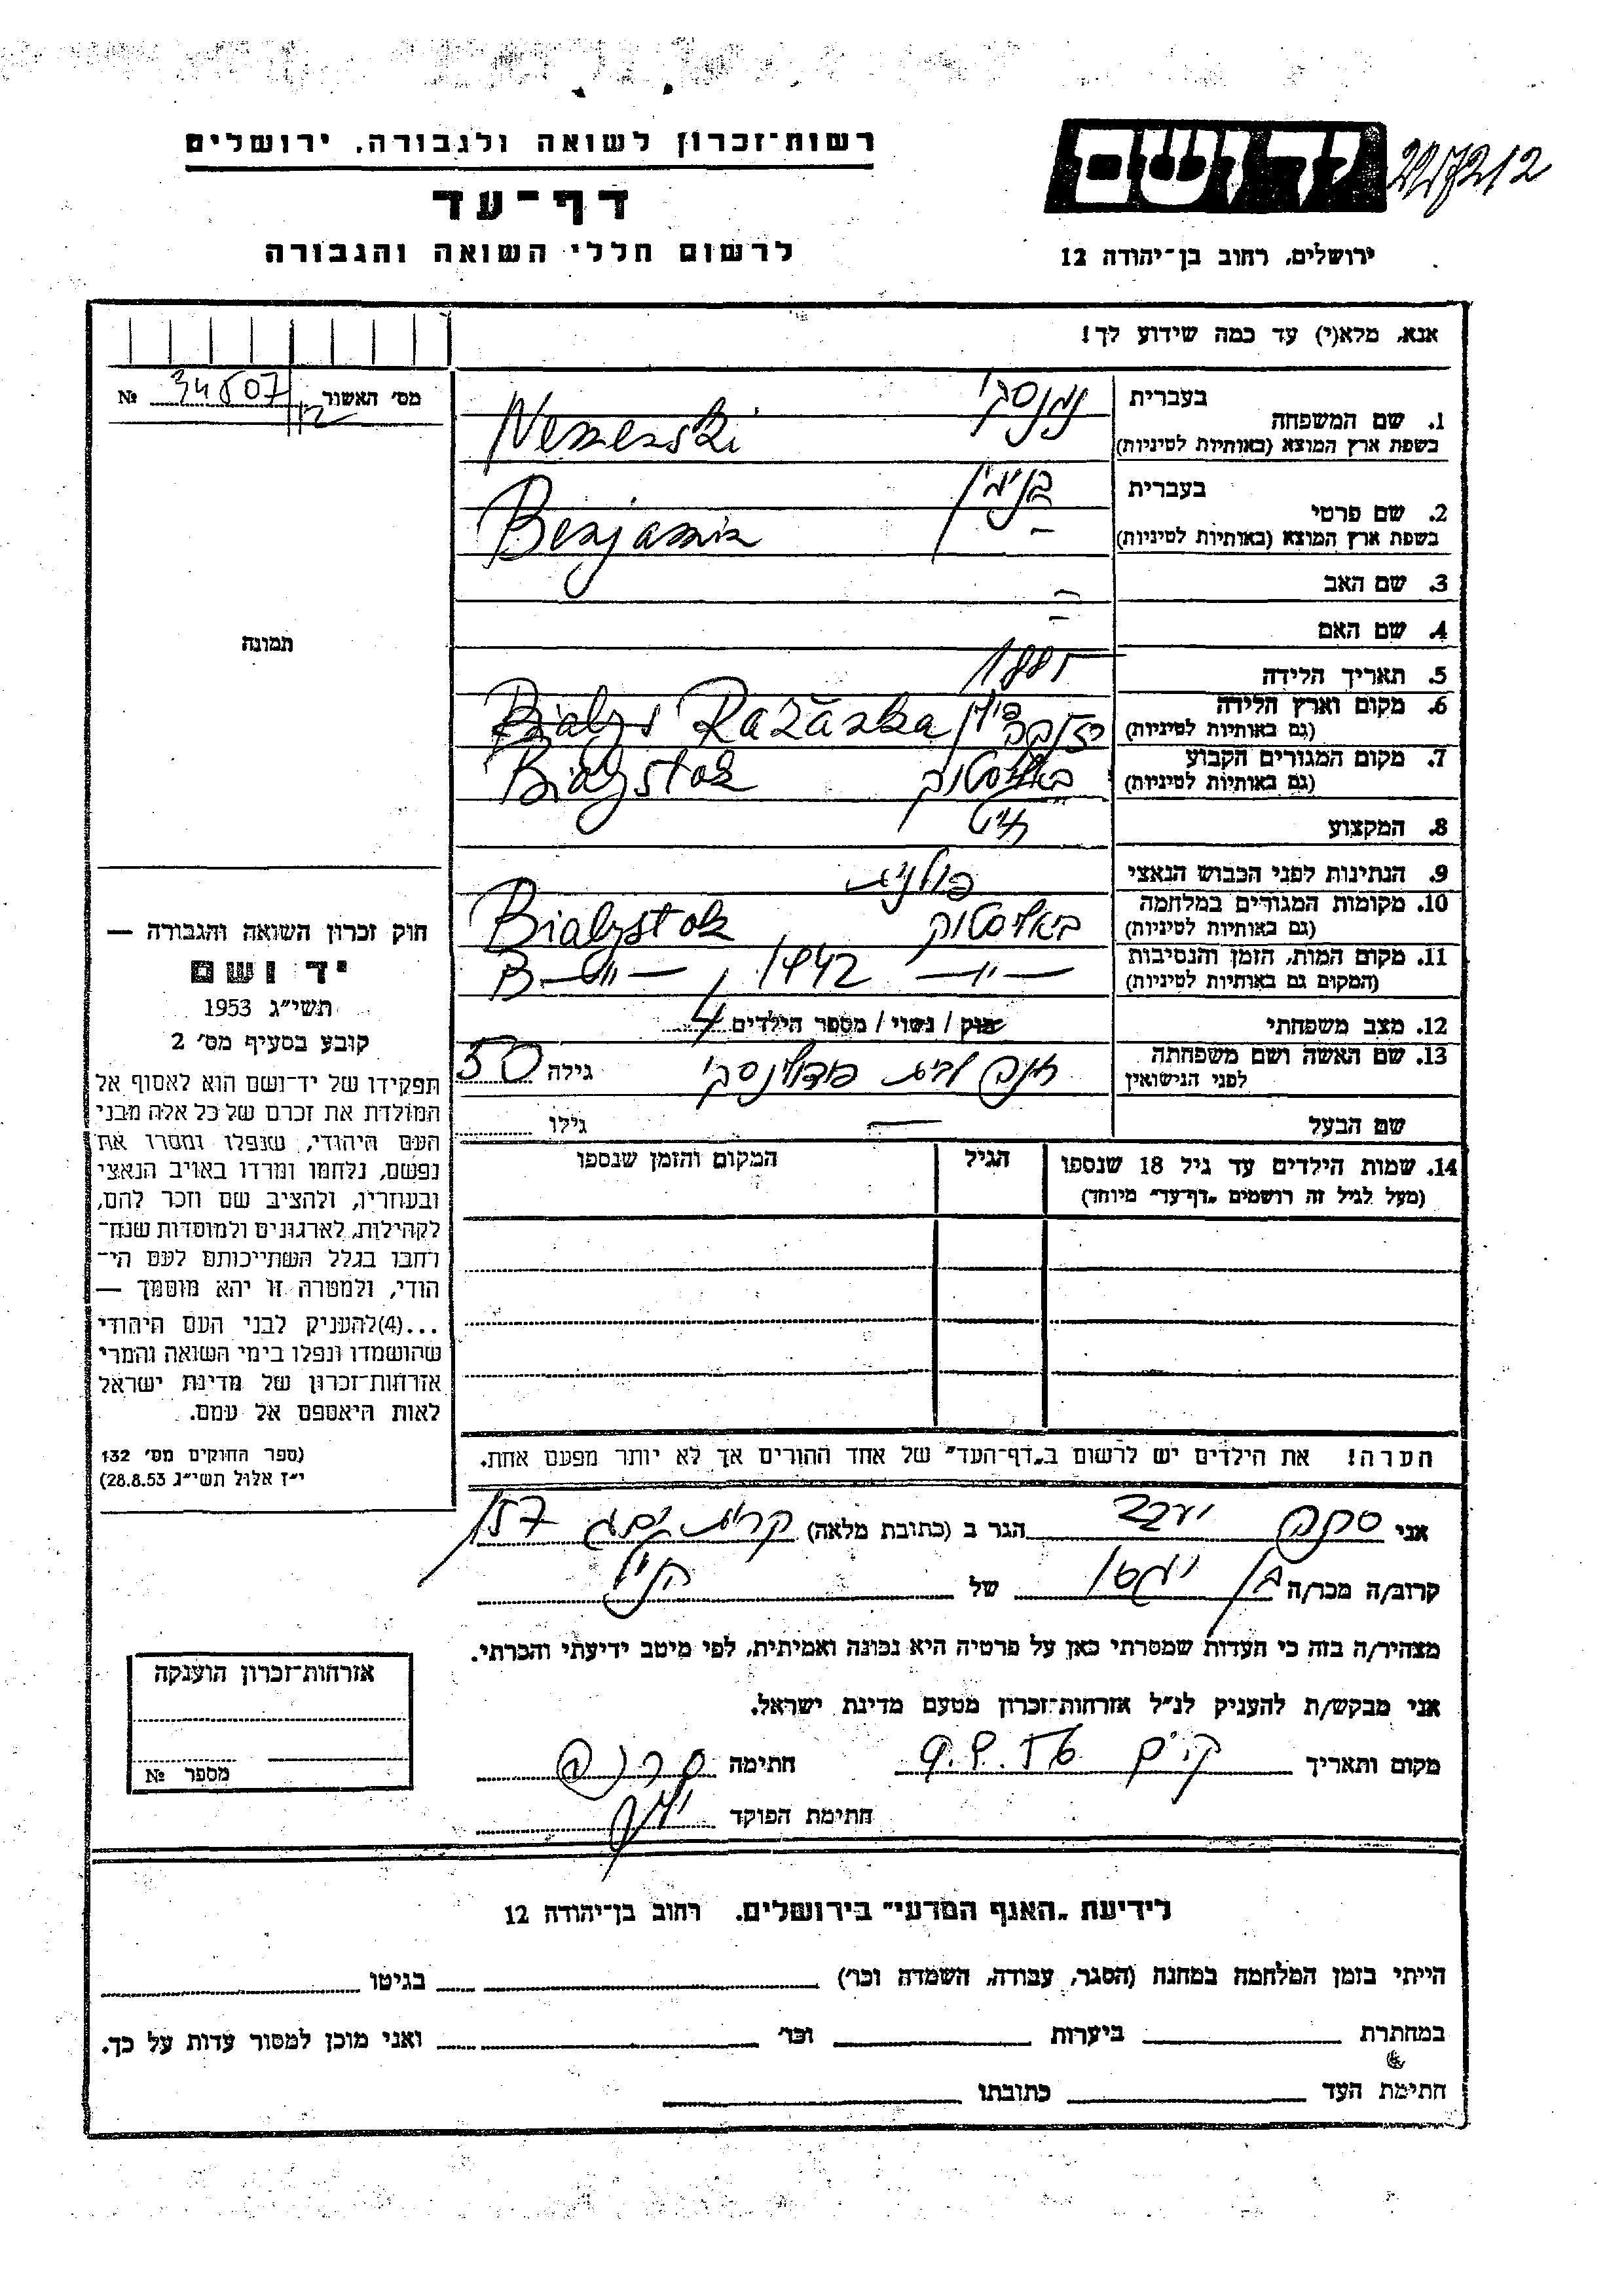 רשות־זכרון לשואה ולגבורה, ירושלים
דף־עד
לרשום חללי השואה והגבורה
ידושם
ירושלים, רחוב בן־יהודה 12
אנא, מלא(י) עד כמה שידוע לך!
מס׳ האשור № 34507
1. שם המשפחה
בעברית
בשפת ארץ המוצא (באותיות לטיניות)
2. שם פרטי
בעברית בנימין
בשפת ארץ המוצא (באותיות לטיניות) Benjamin
3. שם האב
4. שם האם
5. תאריך הלידה 1885
6. מקום וארץ הלידה
(גם באותיות לטיניות)
7. מקום המגורים הקבוע ביאליסטוק
(גם באותיות לטיניות) Bialystok
8. המקצוע חייט
9. הנתינות לפני הכבוש הנאצי פולנית
10. מקומות המגורים במלחמה ביאליסטוק
(גם באותיות לטיניות) Bialystok
11. מקום המות, הזמן והנסיבות 1942
(המקום גם באותיות לטיניות)
12. מצב משפחתי רווק / נשוי / מספר הילדים 4
13. שם האשה ושם משפחתה
לפני הנישואין
גילה 50
שם הבעל — גילו
14. שמות הילדים עד גיל 18 שנספו
(מעל לגיל זה רושמים „דף־עד״ מיוחד)
הגיל
המקום והזמן שנספו
הערה! את הילדים יש לרשום ב„דף־העד״ של אחד ההורים אך לא יותר מפעם אחת.
תמונה
חוק זכרון השואה והגבורה —
יד ושם
תשי״ג 1953
קובע בסעיף מס׳ 2
תפקידו של יד־ושם הוא לאסוף אל
המולדת את זכרם של כל אלה מבני
העם היהודי, שנפלו ומסרו את
נפשם, נלחמו ומרדו באויב הנאצי
ובעוזריו, ולהציב שם וזכר להם,
לקהילות, לארגונים ולמוסדות שנח־
רבו בגלל השתייכותם לעם הי־
הודי, ולמטרה זו יהא מוסמך —
...(4)להעניק לבני העם היהודי
שהושמדו ונפלו בימי השואה והמרי
אזרחות־זכרון של מדינת ישראל
לאות היאספם אל עמם.
(ספר החוקים מס׳ 132
י״ז אלול תשי״ג 28.8.53)
אני יעקב הגר ב (כתובת מלאה) קרית
קרוב/ה מכר/ה בן של הנ״ל
מצהיר/ה בזה כי העדות שמסרתי כאן על פרטיה היא נכונה ואמיתית, לפי מיטב ידיעתי והכרתי.
אני מבקש/ת להעניק לנ״ל אזרחות־זכרון מטעם מדינת ישראל.
מקום ותאריך חתימה
חתימת הפוקד
אזרחות־זכרון הוענקה
מספר №
לידיעת „האגף המדעי״ בירושלים, רחוב בן־יהודה 12
הייתי בזמן המלחמה במחנה (הסגר, עבודה, השמדה וכו׳) בגיטו
במחתרת ביערות וכו׳ ואני מוכן למסור עדות על כך.
חתימת העד כתובתו